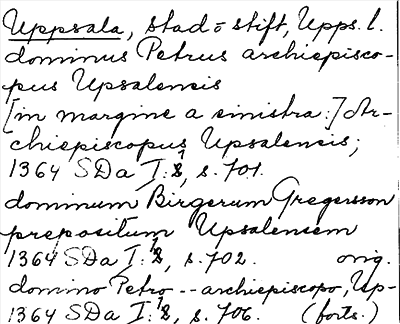 Uppsala, stad o stift, Upps. l.
dominus Petrus archiepisco-
pus Upsalensis
[in margine a sinistra:] Ar-
chiepiscopus Upsalensis;
1364 SDa I:2, s. 701.
dominum Birgerum Gregersson
prepositum Upsalensem
1364 SDa I:2, s. 702. orig.
domino Petro -- archiepiscopo, Up-
1364 SDa I:2, s. 706. (forts.)